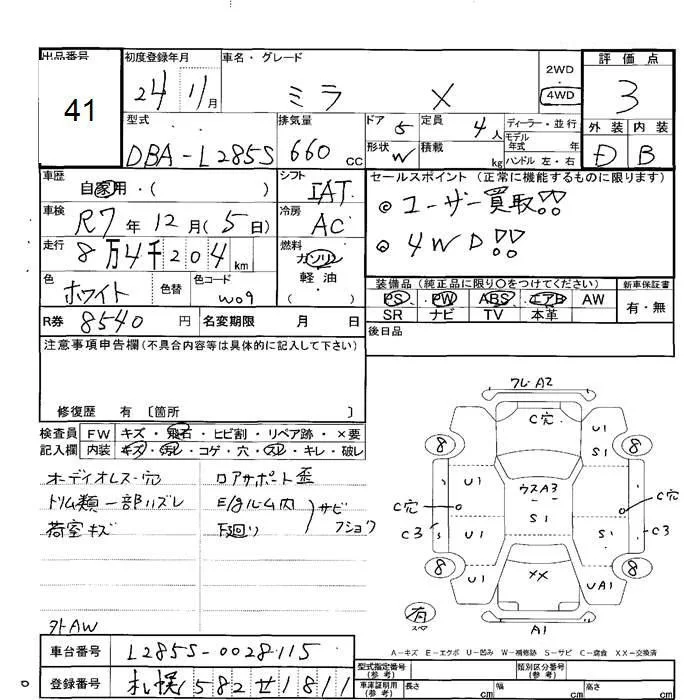 出品番号 初度登録年月 車名・グレード 評価点
41 24 11月 ミラ X 2WD 4WD 3
型式 排気量 ドア 5 定員 4人 ディーラー・並行 外装 内装
DBA-L285S 660 CC 形状 W 積載 kg モデル年式 年式 ハンドル 左・右 D B
車歴 自家用・( ) シフト IAT セールスポイント (正常に機能するものに限ります)
車検 R7年12月(5日) 冷房 AC ◎ユーザー買取!!
走行 8万4千204km 燃料 ガソリン 軽油 ( ) ◎4WD!!
色 ホワイト 色替 色コード W09
装備品(純正品に限り〇をつけてください) 新車保証書
PS PW ABS エアB AW 有・無
SR ナビ TV 本革
R券 8540円 名変期限 月 日 後日品
注意事項申告欄(不具合内容等は具体的に記入して下さい)
修復歴 有 〔箇所 〕
検査員 FW キズ・飛石・ヒビ割・リペア跡・×要
記入欄 内装 キズ・汚レ・コゲ・穴・スレ・キレ・破レ
オーディオレス・穴 ロアサポート歪
トリム類一部ハズレ E/gルーム内 サビ
荷室キズ 下廻り フショク
外AW
フレ・A2
C穴
U1
S1
8 8
U1 ウスA3 U1
C穴 C穴
S1
C3 S1 C3
8 8
U1 XX UA1
有
スペ
A1
A-キズ E-エクボ U-凹み W-補修跡 S-サビ C-腐食 XX-交換済
車台番号 L285S-0028115
登録番号 札幌582せ1811
型式指定番号(参考) 類別区分番号(参考)
車庫証明用(参考) 長さ cm 幅 cm 高さ cm